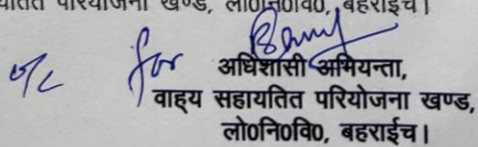 परियोजना खण्ड, लो०नि०वि०, बहराईच।
for
अधिशासी अभियन्ता,
वाह्य सहायतित परियोजना खण्ड,
लो०नि०वि०, बहराईच।